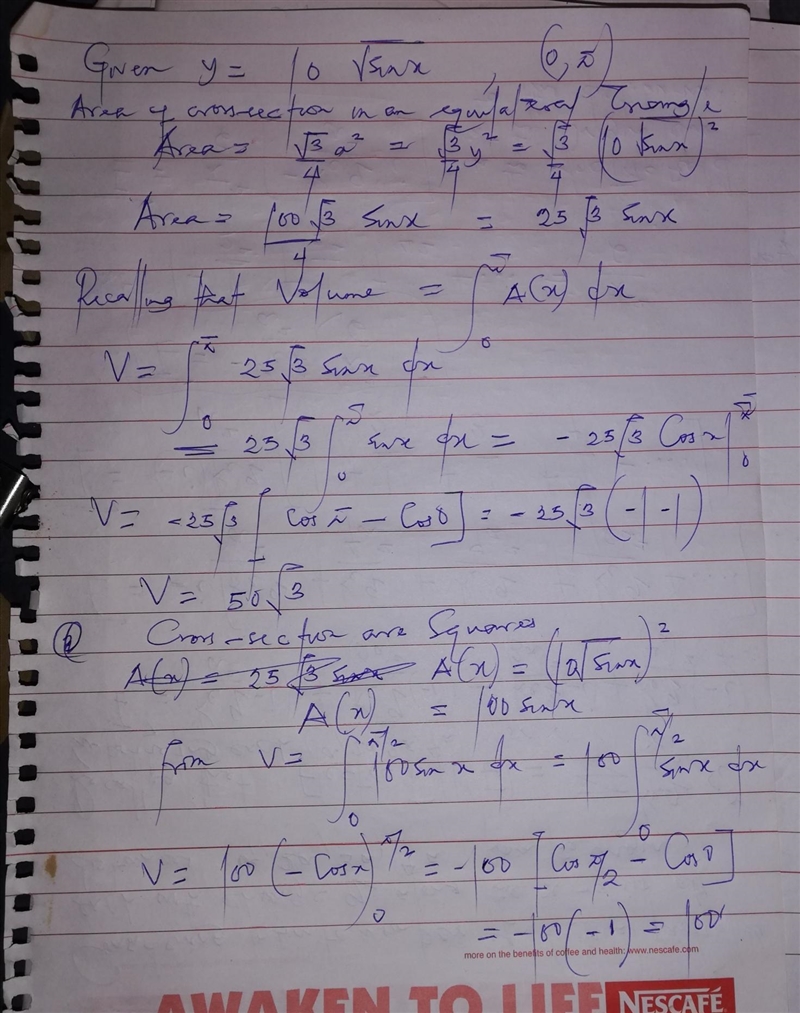 Given y = 10 √sinx , (0, π)
Area of cross-section in an equilateral Triangle
Area = √3/4 a² = √3/4 y² = √3/4 (10 √sinx)²
Area = 100√3/4 sinx = 25√3 sinx
Recalling that Volume = ∫₀^π A(x) dx
V = ∫₀^π 25√3 sinx dx
= 25√3 ∫₀^π sinx dx = - 25√3 Cosx |₀^π
V = -25√3 [Cos π - Cos0] = -25√3 (-1 -1)
V = 50√3
Cross-section are Squares,
A(x) = 25√3 sinx A(x) = (10√sinx)²
A(x) = 100 sinx
from V = ∫₀^π/2 100 sin x dx = 100 ∫₀^π/2 sinx dx
V = 100 (-Cosx)₀^π/2 = -100 [Cos π/2 - Cos0]
= -100(-1) = 100
more on the benefits of coffee and health: www.nescafe.com
AWAKEN TO LIFE NESCAFÉ